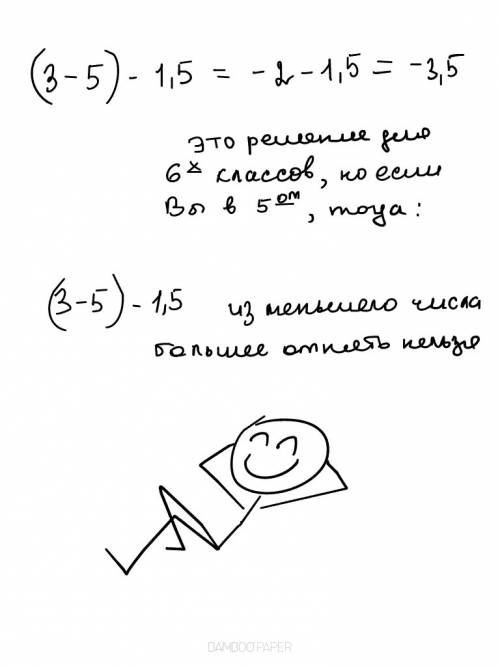 (3-5) - 1,5 = -2-1,5 = -3,5
это решение для
6х классов, но если
Вы в 5ом, тогда:
(3-5) - 1,5 из меньшего числа
большее отнять нельзя
BAMBOOPAPER